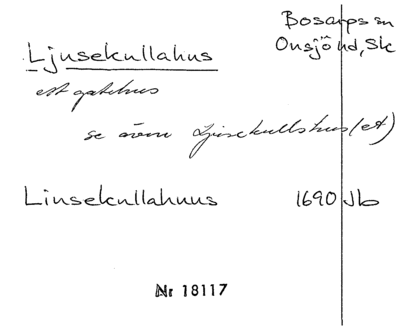 Bosarps sn
Ljusekullahus
Onsjö hd, Sk
ett gatehus
se även Ljusekullshus(et)
Linsekullahuus 1690 Jb
Nr 18117